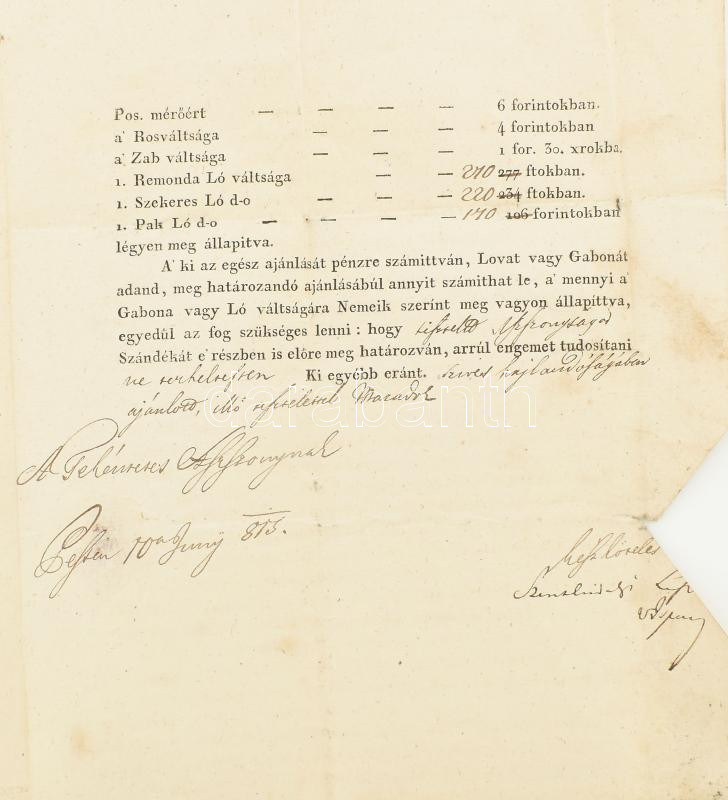 Pos. mérőért — — — — 6 forintokban.
a' Rosváltsága — — — 4 forintokban
a' Zab váltsága — — — 1 for. 30. xrokba.
1. Remonda Ló váltsága — — 210 277 ftokban.
1. Szekeres Ló d-o — — — 220 234 ftokban.
1. Pak Ló d-o — — — — 170 106 forintokban
légyen meg állapitva.
A' ki az egész ajánlását pénzre számittván, Lovat vagy Gabonát
adand, meg határozandó ajánlásábúl annyit számithat le, a' mennyi a'
Gabona vagy Ló váltságára Nemeik szerínt meg vagyon állapíttva,
egyedűl az fog szükséges lenni: hogy Asszonysagod
Szándékát e' részben is előre meg határozván, arrúl engemet tudosítani
ne terheltessen Ki egyébb eránt. szives hajlandóságában
ajánlott, illő tisztelettel Maradok
A Tekéntetes Asszonynak
Pesten 10a Juny 813.
darabanth